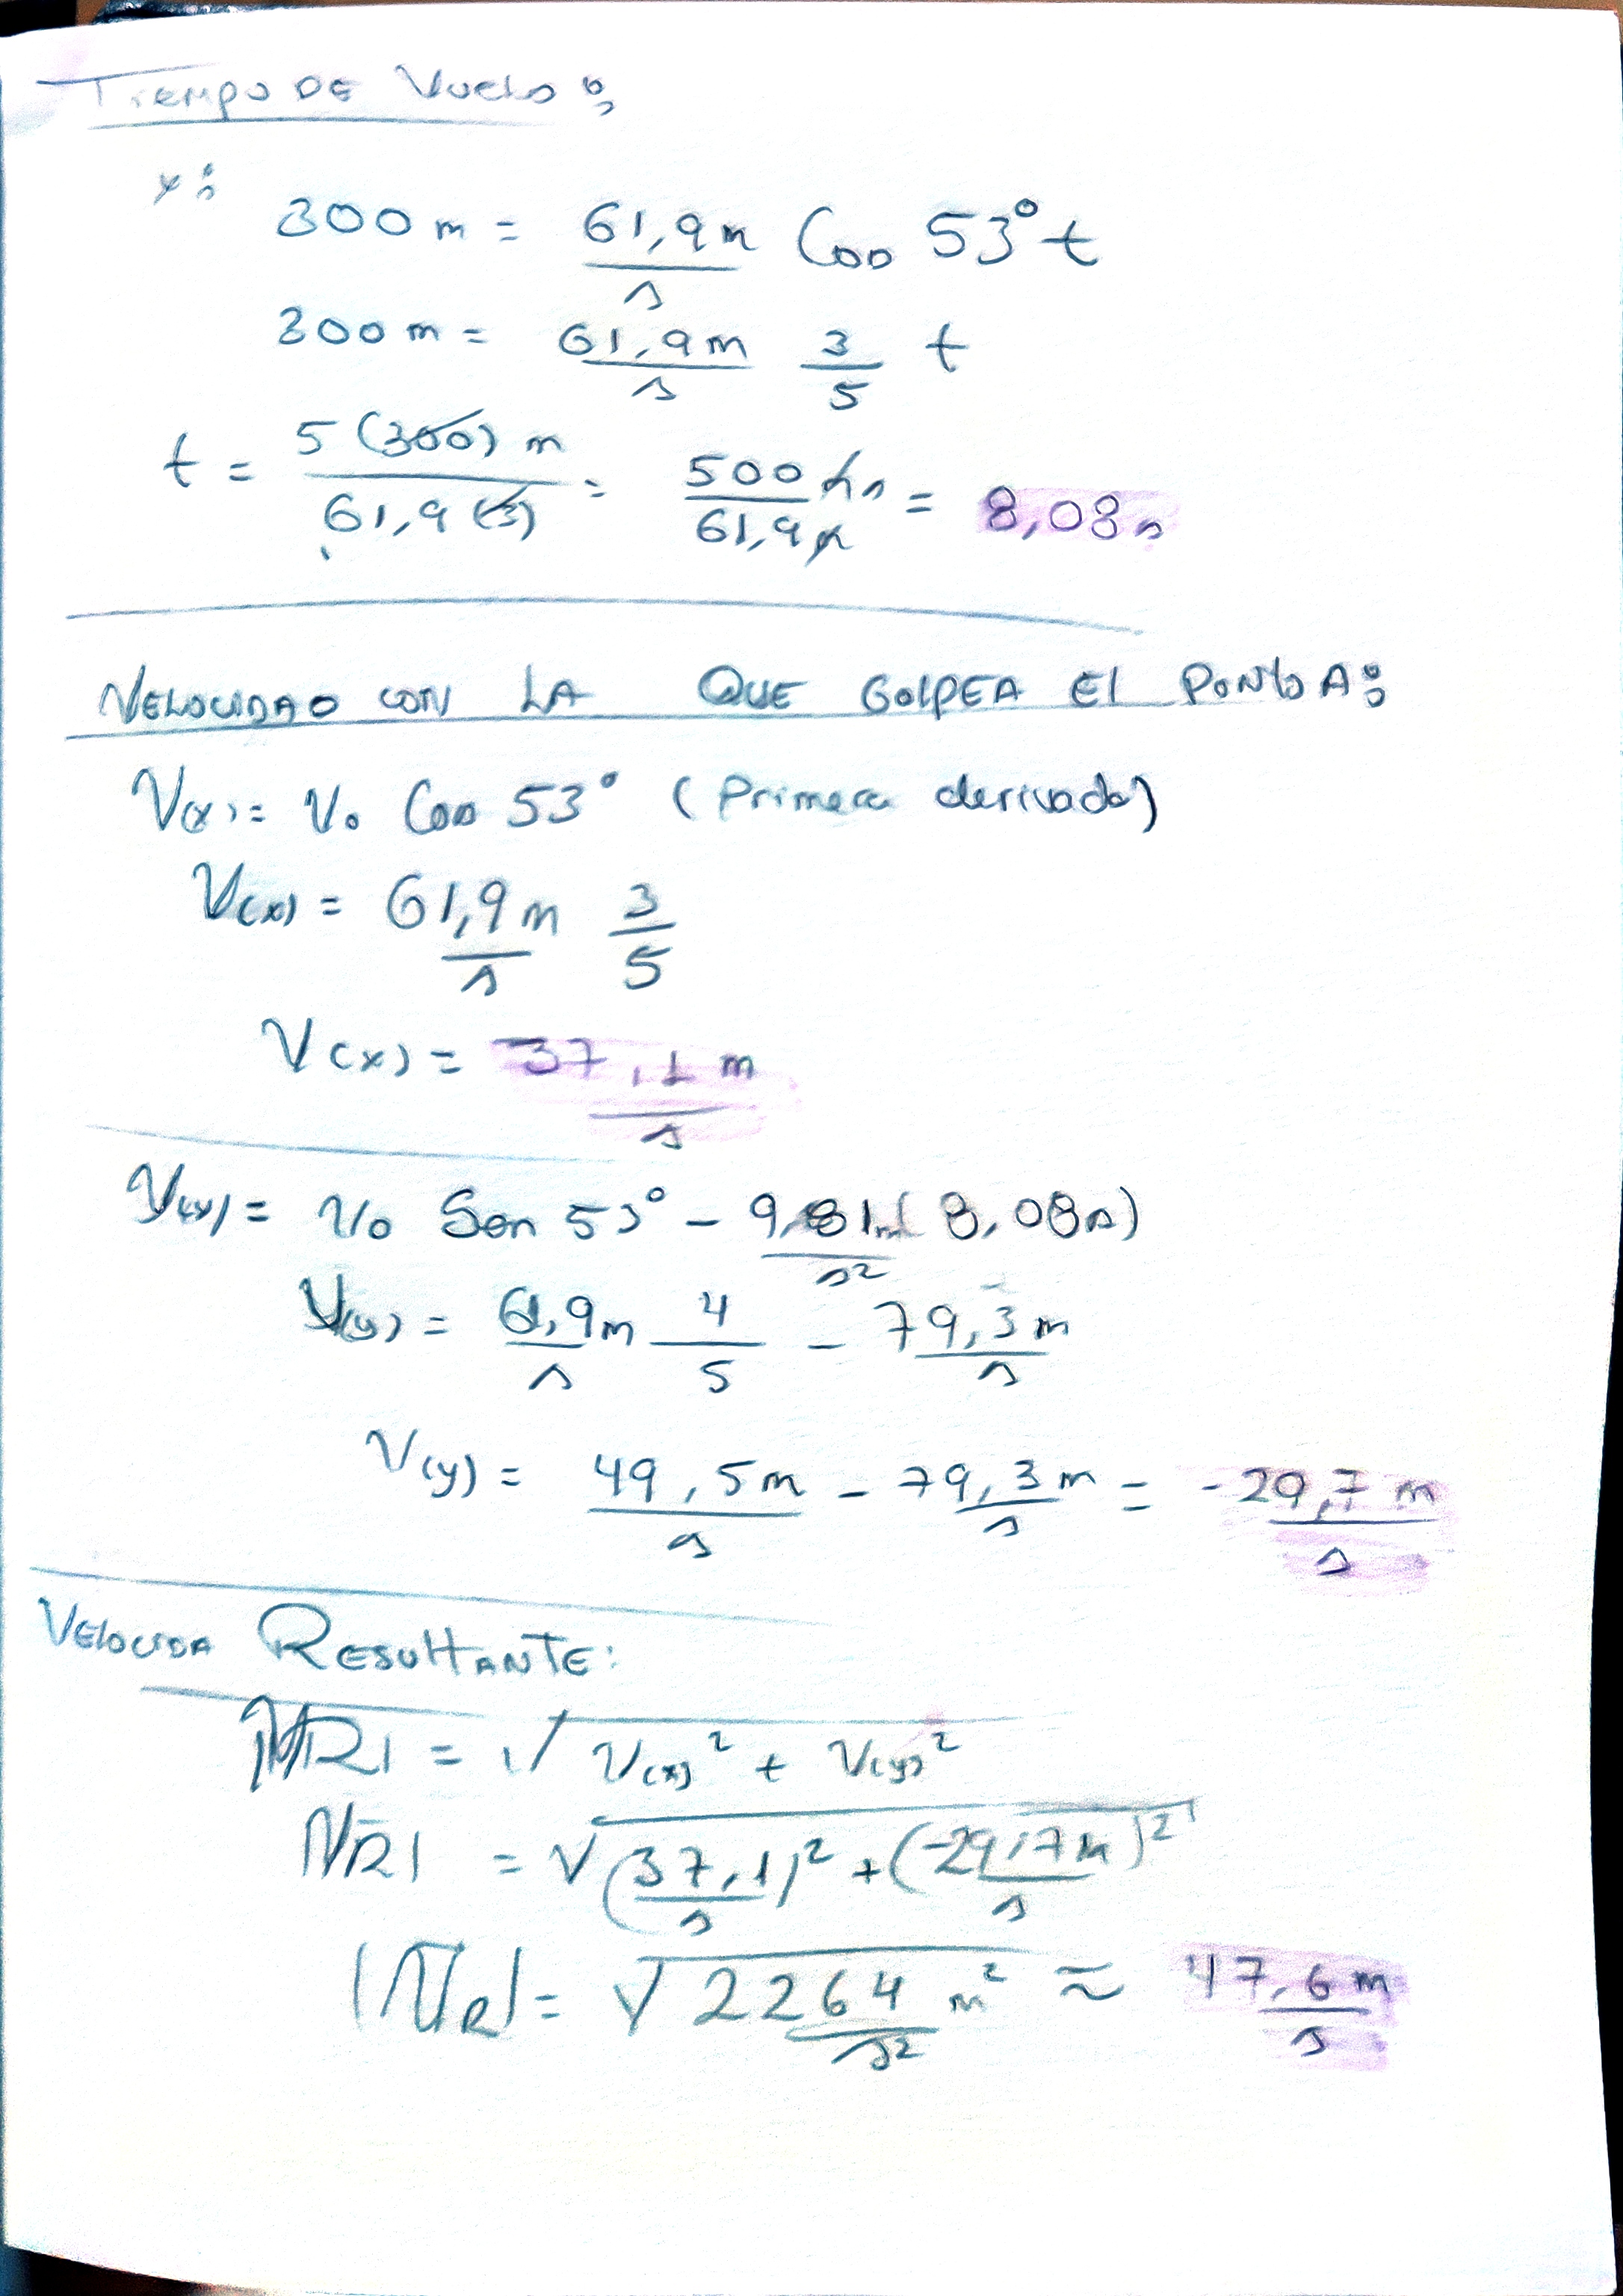 Tiempo DE Vuelo:
x:
300 m = 61,9 m/s Cos 53° t
300 m = 61,9 m/s 3/5 t
t = 5 (300) m / 61,9 (3) = 500 m s / 61,9 m = 8,08 s
VELOCIDAD CON LA QUE GOLPEA El PUNto A:
V(x) = Vo Cos 53° (Primera derivada)
V(x) = 61,9 m/s 3/5
V(x) = 37,1 m/s
V(y) = Vo Sen 53° - 9,81 m/s² (8,08 s)
V(y) = 61,9 m/s 4/5 - 79,3 m/s
V(y) = 49,5 m/s - 79,3 m/s = -29,7 m/s
VELOCIDA RESULTANTE:
|VR| = √ V(x)² + V(y)²
|VR| = √ (37,1/s)² + (-29,7 m/s)²
|VR| = √ 2264 m²/s² ≈ 47,6 m/s